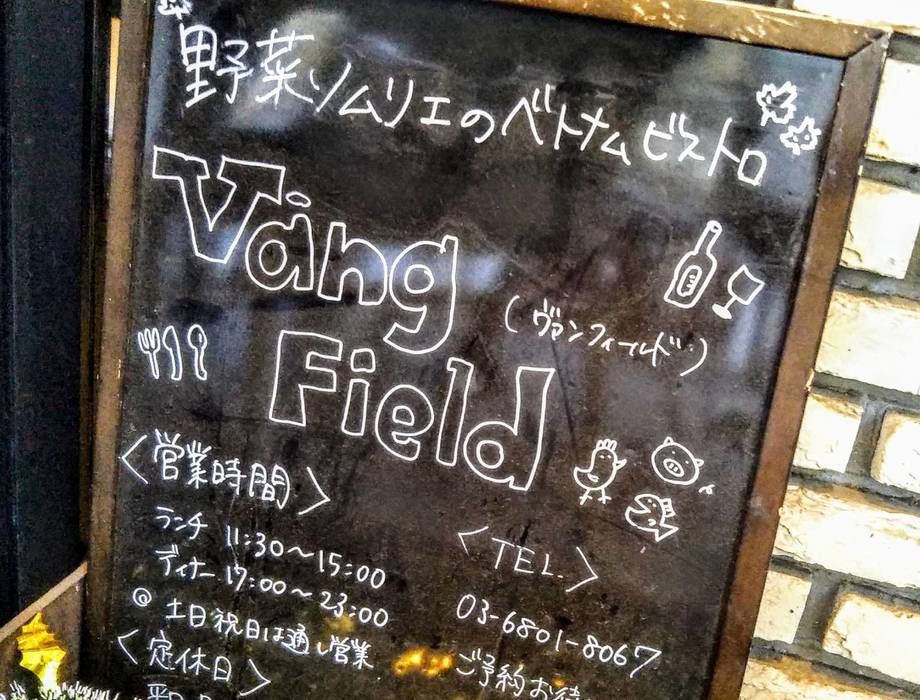 野菜ソムリエのベトナムビストロ
Vâng
Field
(ヴァンフィールド)
<営業時間>
ランチ 11:30〜15:00
ディナー 17:00〜23:00
◎ 土日祝日は通し営業
<定休日>
<TEL.>
03-6801-8067
ご予約お待